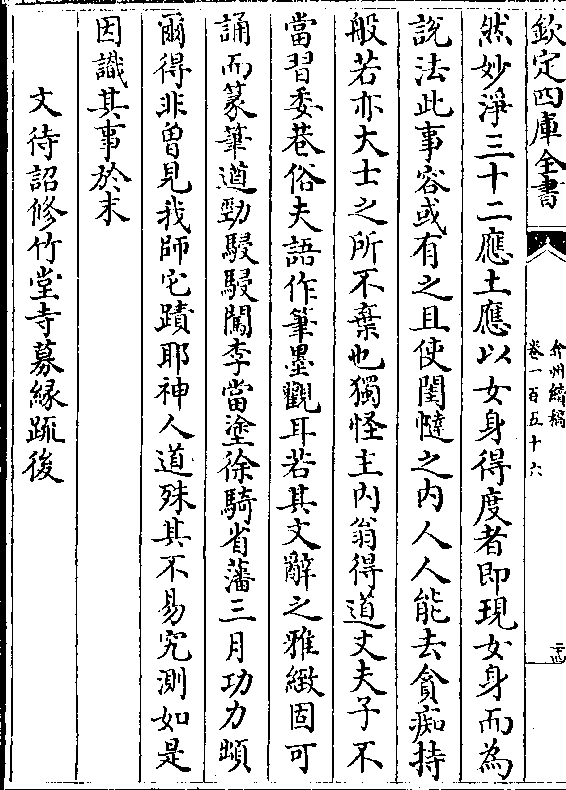 欽定四庫全書
弇州續稿
卷一百五十六
二十四
然妙淨三十二應土應以女身得度者即現女身而為
說法此事容或有之且使閨闥之内人人能去貪痴持
般若亦大士之所不棄也獨怪主内翁得道丈夫子不
當習委巷俗夫語作筆墨觀耳若其文辭之雅緻固可
誦而篆筆遒勁駸駸闖李當塗徐騎省藩三月功力頓
爾得非曽見我師宅蹟耶神人道殊其不易究測如是
因識其事於末
文待詔修竹堂寺募縁䟽後